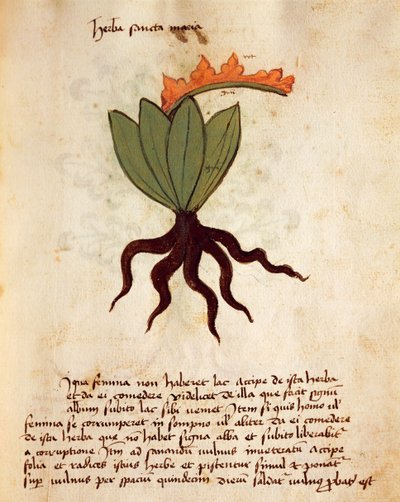 herba sancta maria
Siqua femina non haberet lac accipe de ista herba
et da ei comedere videlicet de illa que facit signũ
album subito lac sibi veniet Item si quis homo ul'
femina se corrumperet in sompno ul' aliter da ei comedere
de ista herba que no habet signa alba et subito liberabit
a corruptione Item ad sanandũ vulnus inveteratũ accipe
folia et radices istius herbe et pistentur simul et ponat
sup vulnus per spaciũ quindecim dierũ saldat vulnus probatũ est